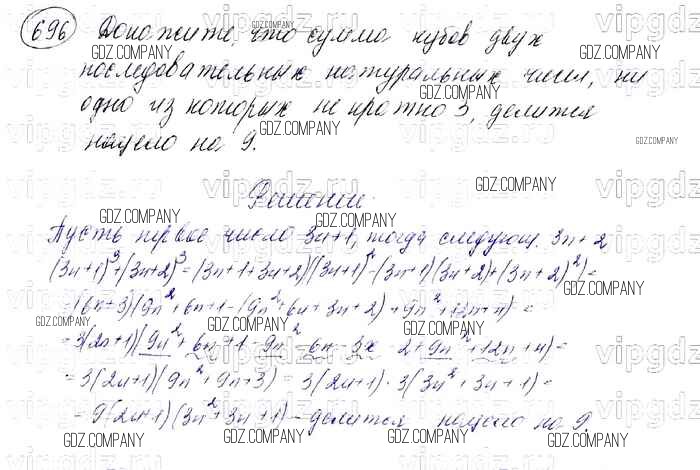 696 Докажите, что сумма кубов двух
последовательных натуральных чисел, ни
одно из которых не кратно 3, делится
нацело на 9.
Решение.
Пусть первое число 3n+1, тогда следующ. 3n+2
(3n+1)³+(3n+2)³=(3n+1+3n+2)((3n+1)²-(3n+1)(3n+2)+(3n+2)²)=
=(6n+3)(9n²+6n+1-(9n²+6n+3n+2)+9n²+12n+4)=
=3(2n+1)(9n²+6n+1-9n²-6n-3n-2+9n²+12n+4)=
=3(2n+1)(9n²+9n+3)=3(2n+1)·3(3n²+3n+1)=
=9(2n+1)(3n²+3n+1)-делится нацело на 9.